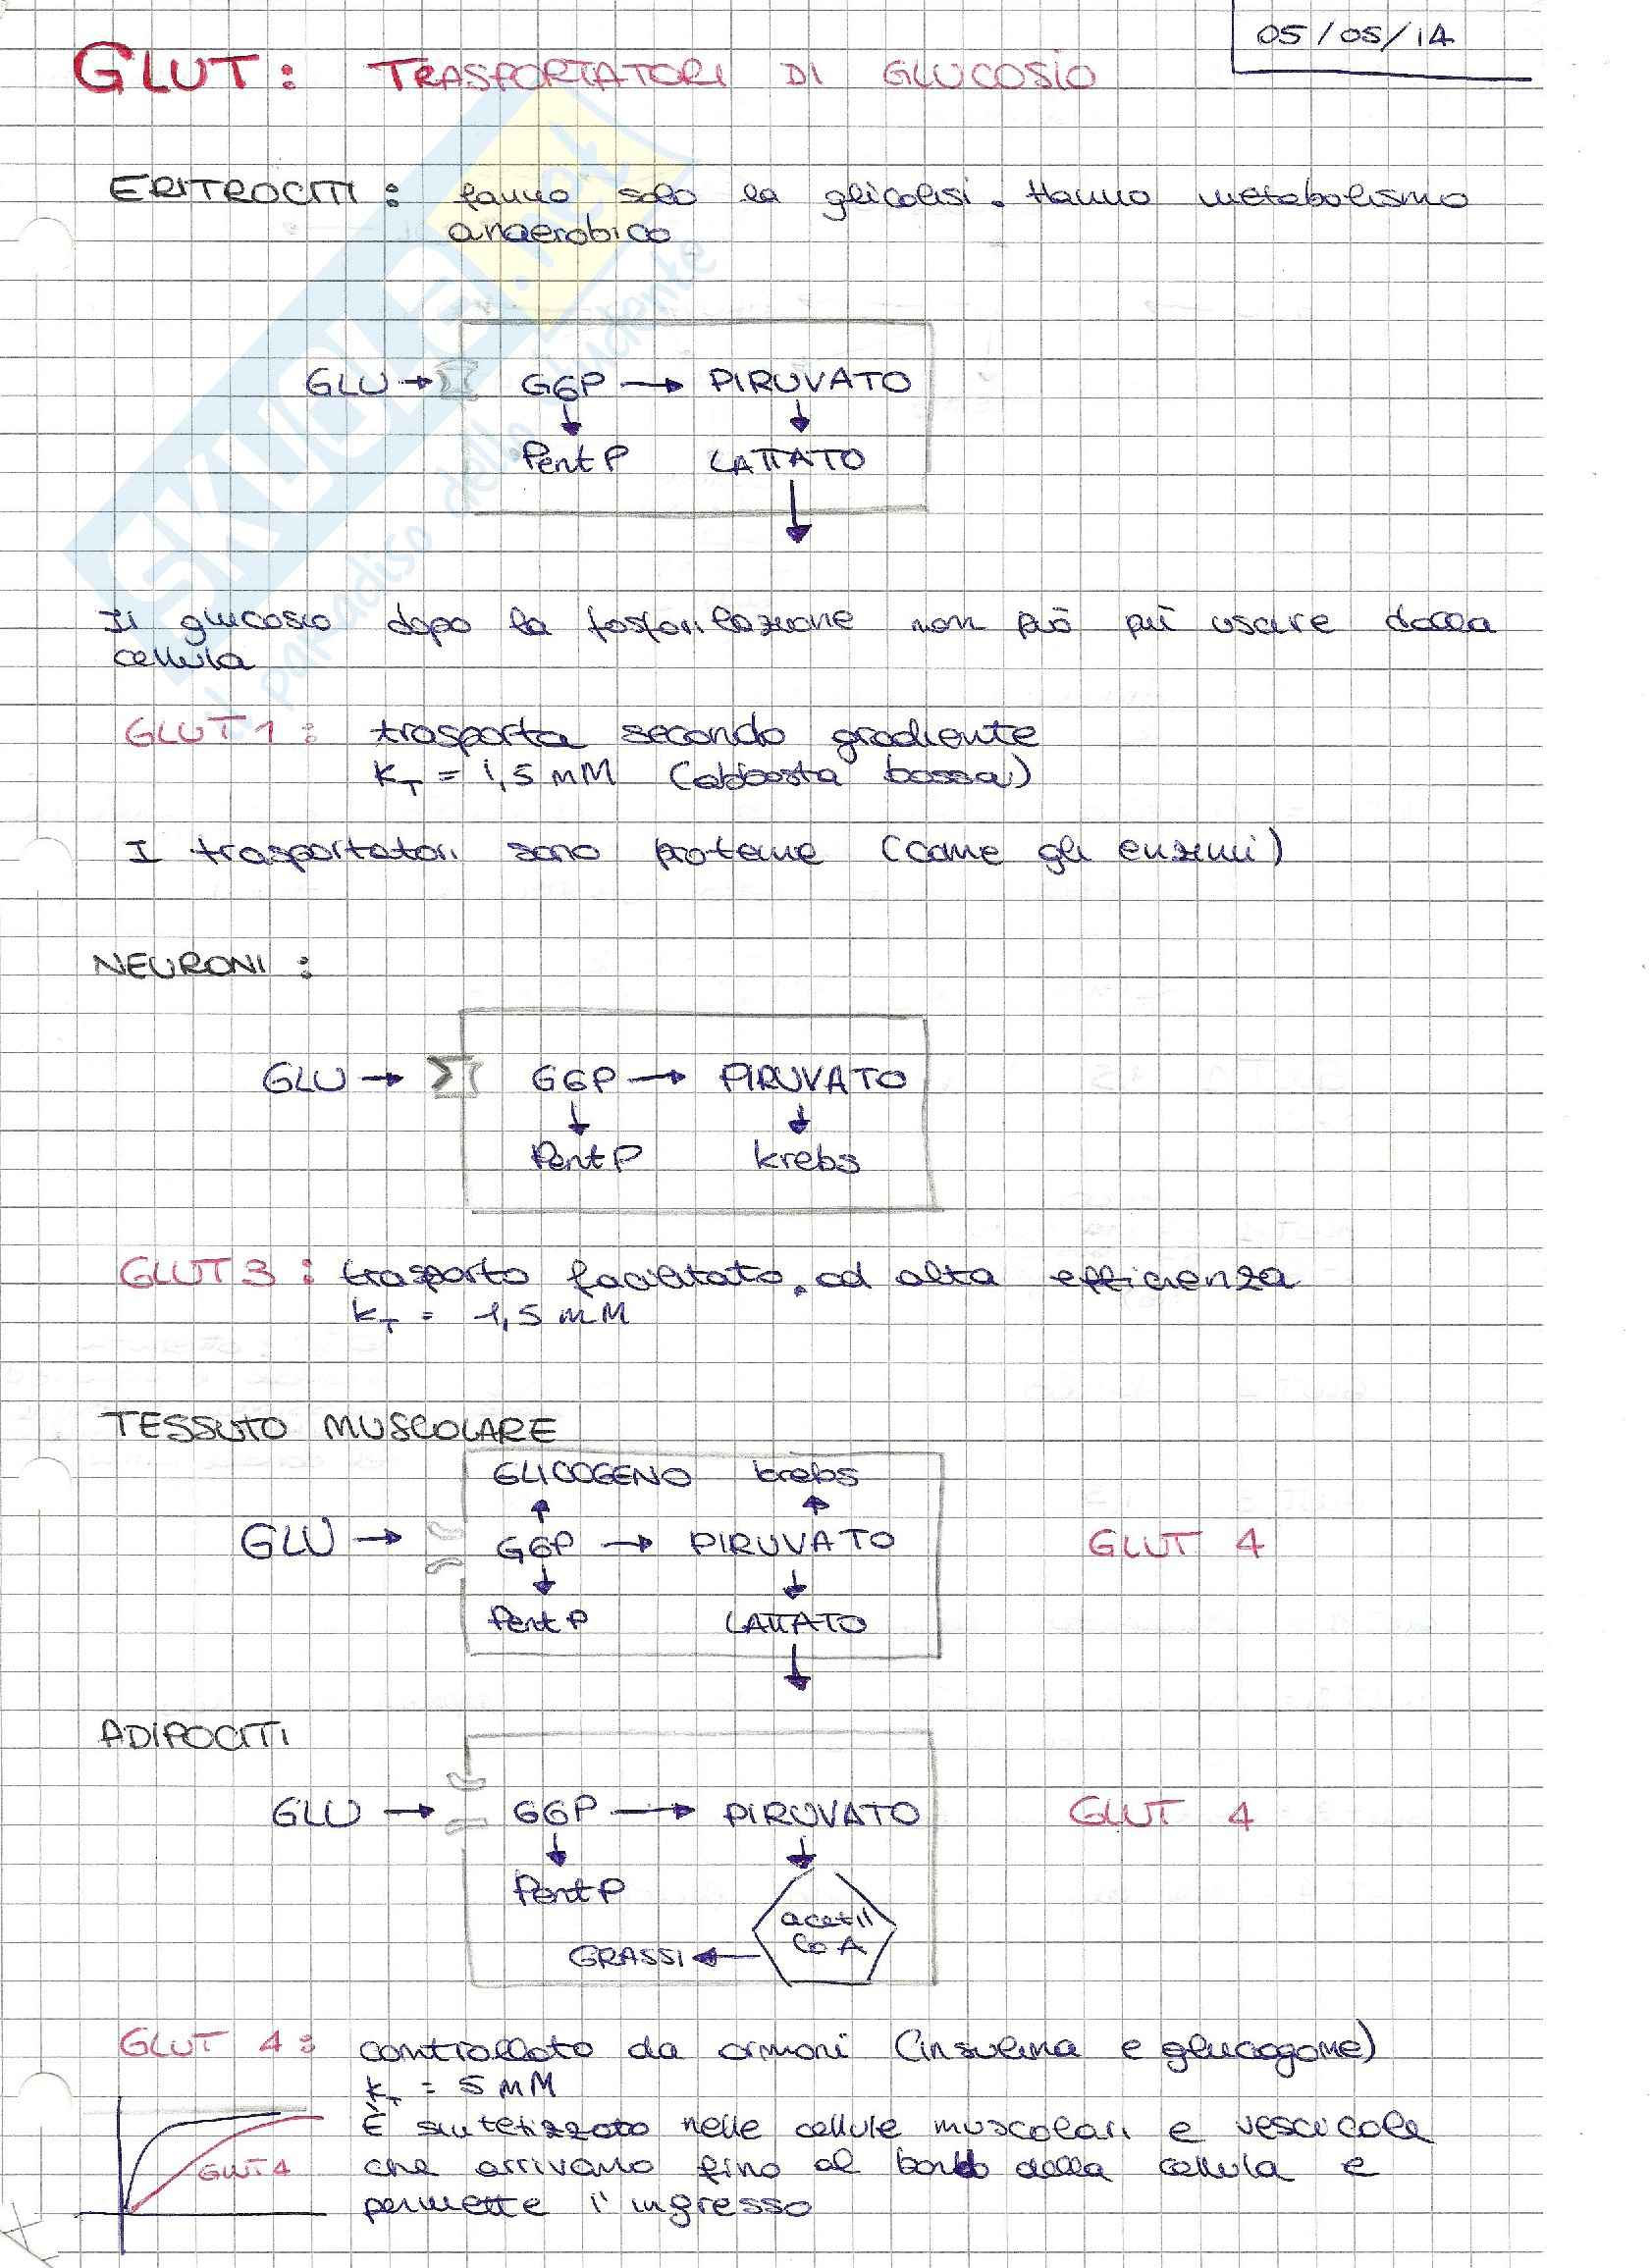 05/05/14
GLUT: TRASPORTATORI DI GLUCOSIO
ERITROCITI: fanno solo la glicolisi. Hanno metabolismo
anaerobico
GLU → G6P → PIRUVATO
↓ ↓
PentP LATTATO
↓
Il glucosio dopo la fosforilazione non può più uscire dalla
cellula
GLUT 1: trasporta secondo gradiente
KT = 1,5 mM (abbasta bassa)
I trasportatori sono proteine (come gli enzimi)
NEURONI:
GLU → G6P → PIRUVATO
↓ ↓
PentP krebs
GLUT 3: trasporto facilitato. ad alta efficienza
KT = 1,5 mM
TESSUTO MUSCOLARE
GLICOGENO krebs
↑ ↑
GLU → G6P → PIRUVATO GLUT 4
↓ ↓
PentP LATTATO
↓
ADIPOCITI
GLU → G6P → PIRUVATO GLUT 4
↓ ↓
PentP
acetil
CoA
GRASSI ←
GLUT 4: controllato da ormoni (insulina e glucagone)
KT = 5 mM
È sintetizzato nelle cellule muscolari e vescicole
GLUT4 che arrivano fino al bordo della cellula e
permette l'ingresso
SKUOLA.net
il paradiso dello studente